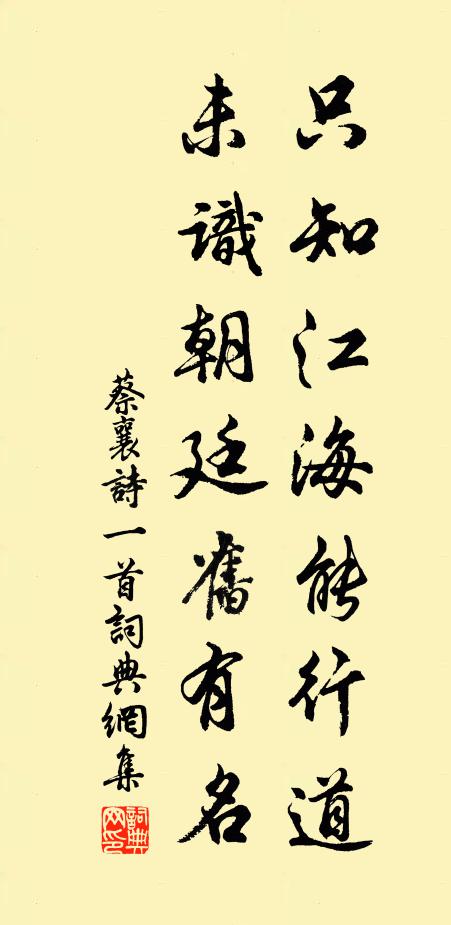 只知江海能行道
未識朝廷舊有名
蔡襄詩一首詞典網集
詞典网印